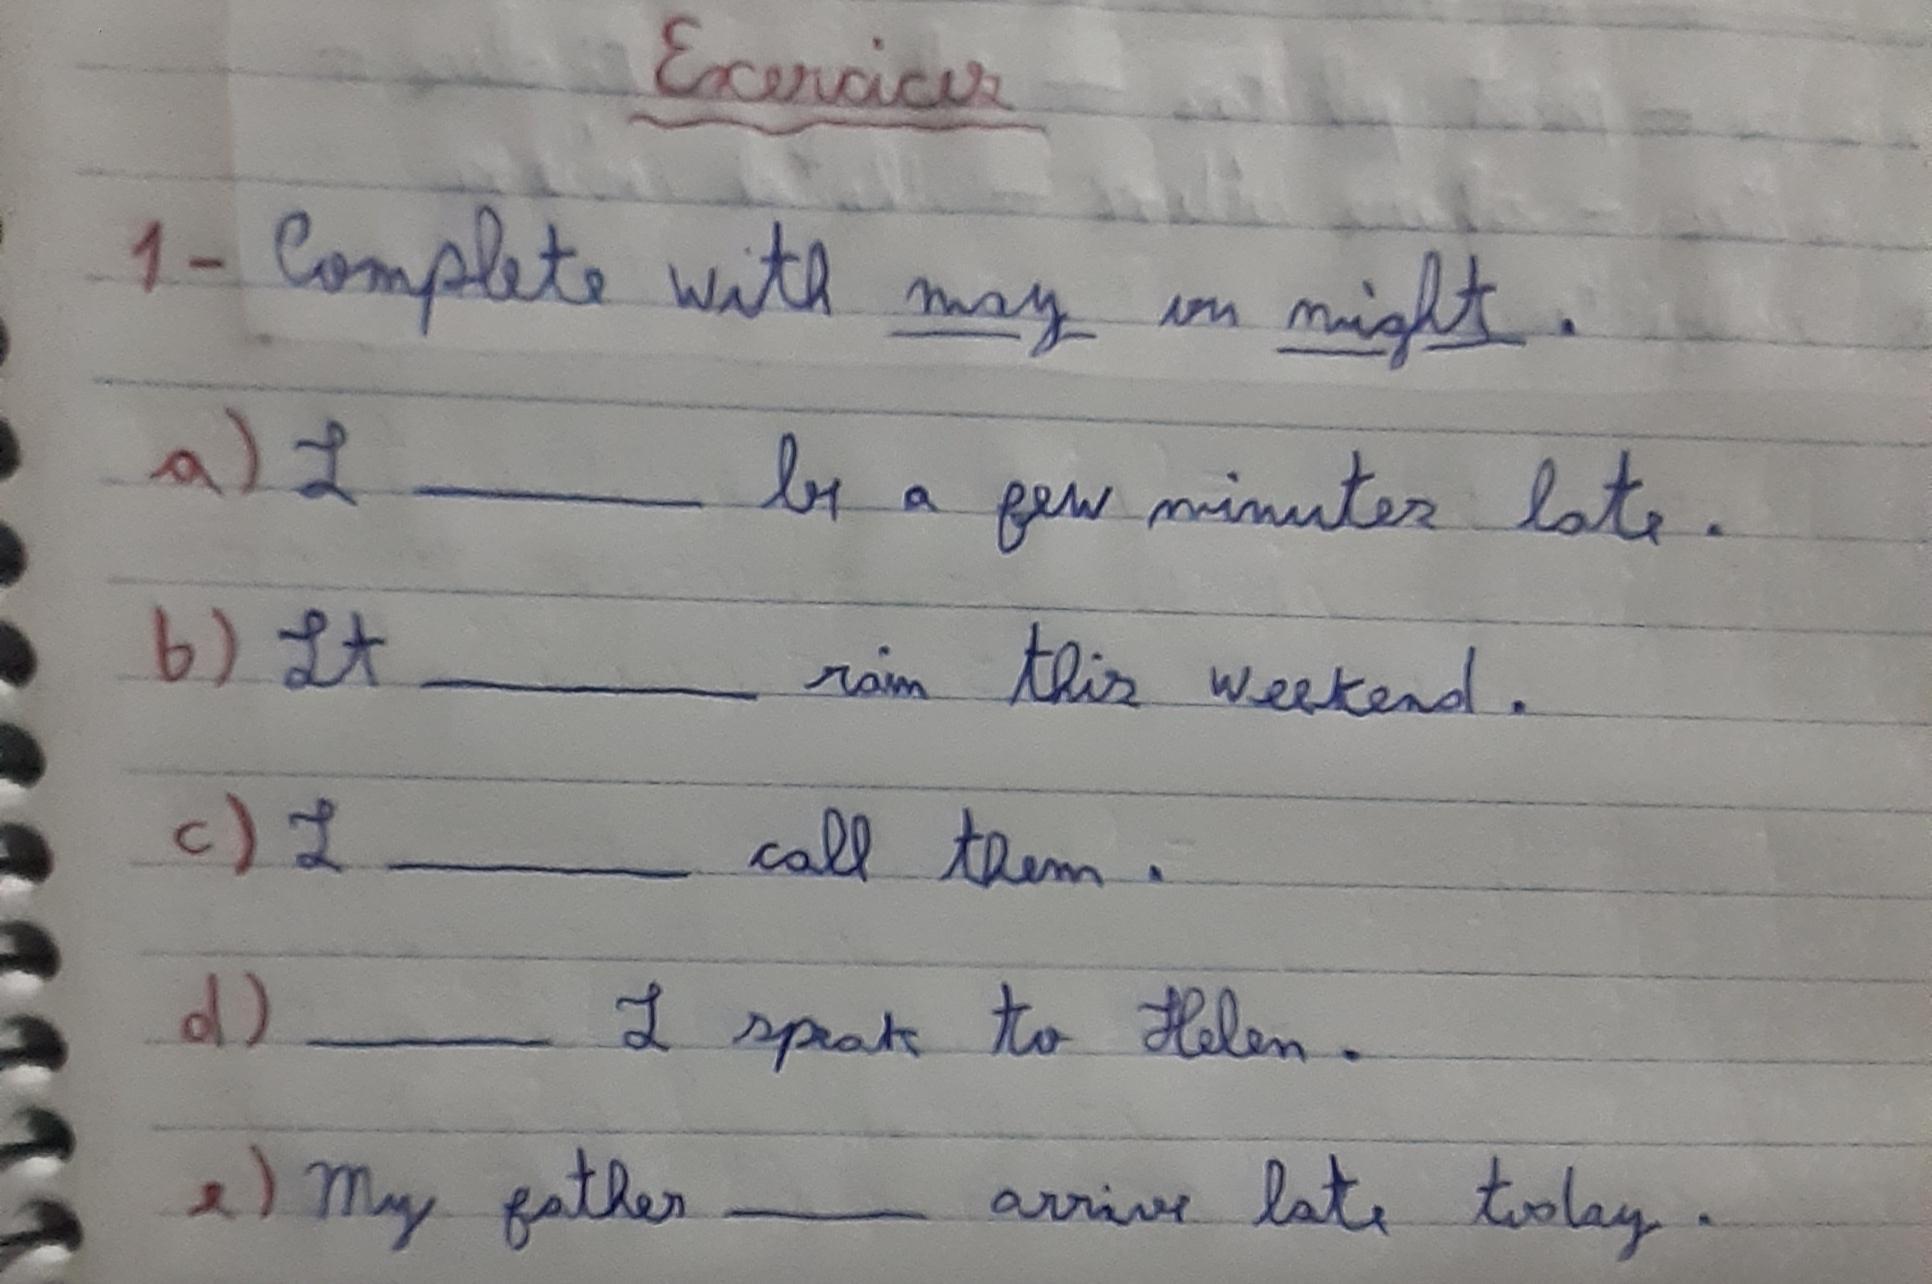 Exercices
1- Complete with may or might.
a) I ______ be a few minutes late.
b) It ______ rain this weekend.
c) I ______ call them.
d) ______ I speak to Helen.
e) My father ______ arrive late today.